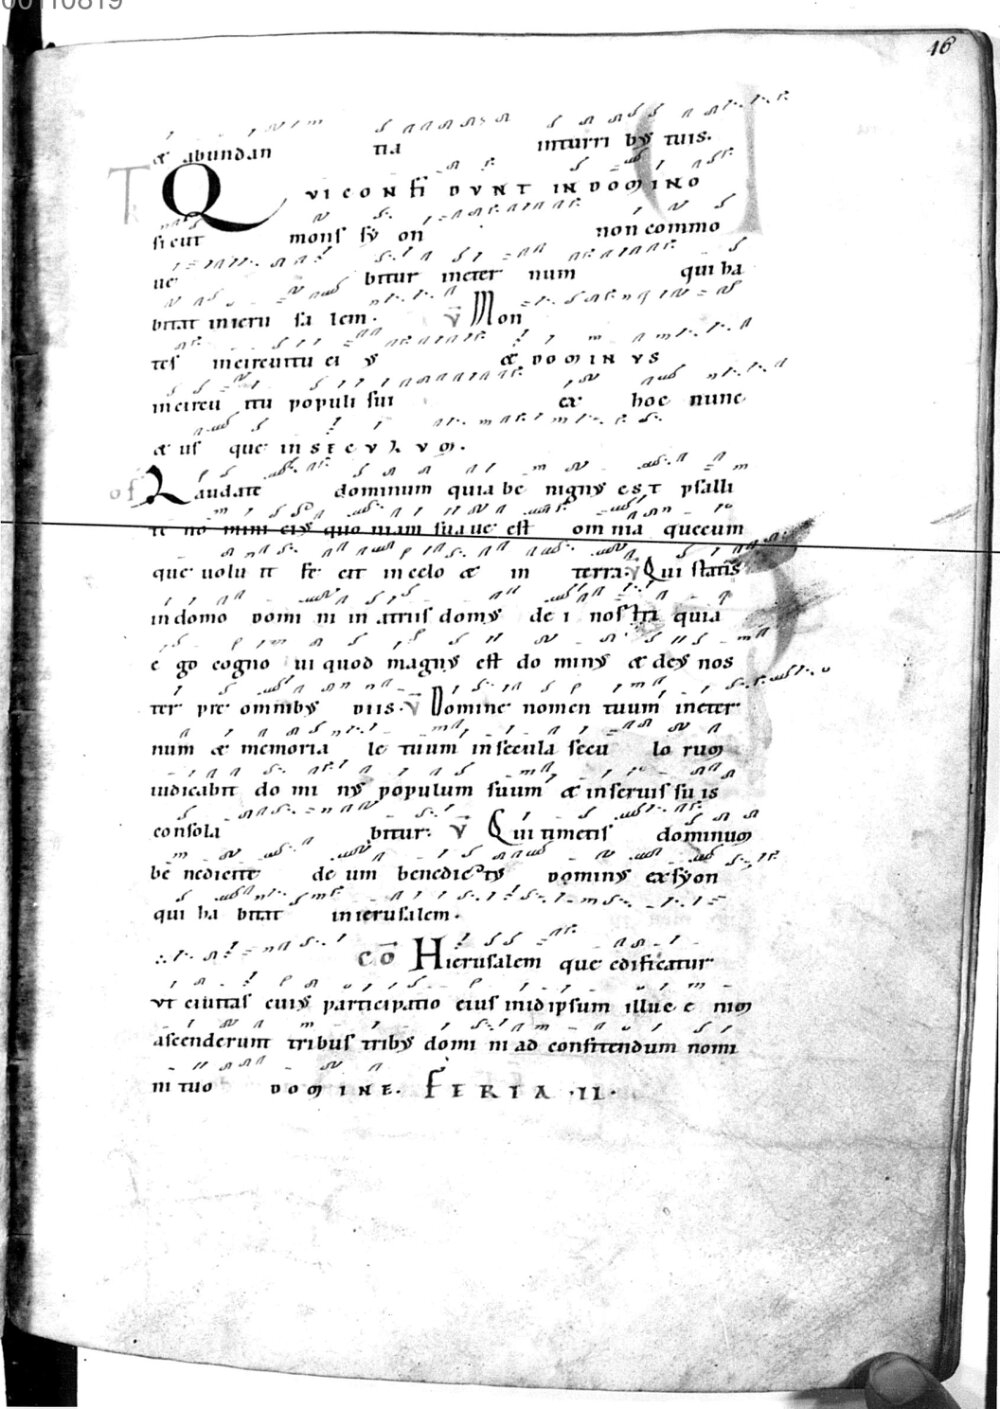 00110819
46
& abundan tia inturri bus tuis.
T QVI CONFIDVNT INDOMINO
sicut mons syon non commo
ue bitur ineter num qui ha
bitat inieru sa lem. V Mon
tes incircuitu ei us & DOMINVS
incircu itu populi sui ex hoc nunc
& us que INSECVLVM.
of Laudate dominum quia be nignus EST psalli
te no mini eius quo niam suaue est om nia quecum
que uolu it fe cit incelo & in terra. V Qui statis
indomo domi ni in atriis domus de i nostri quia
e go cogno ui quod magnus est do minus & deus nos
ter pre omnibus diis. V Domine nomen tuum ineter
num & memoria le tuum insecula secu lo rum
iudicabit do mi nus populum suum & inseruis su is
consola bitur. V Qui timetis dominum
be nedicite de um benedictus dominus exsyon
qui ha bitat inierusalem.
CO Hierusalem que edificatur
vt ciuitas cuius participatio eius inidipsum illuc e nim
ascenderunt tribus tribus domi ni ad confitendum nomi
ni tuo DOMINE. FERIA .II.